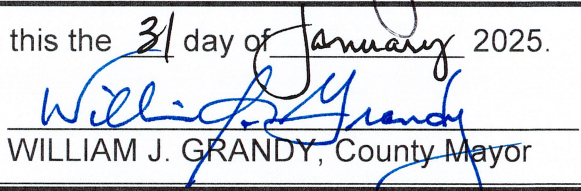 this the 31 day of January 2025.
William J. Grandy
WILLIAM J. GRANDY, County Mayor